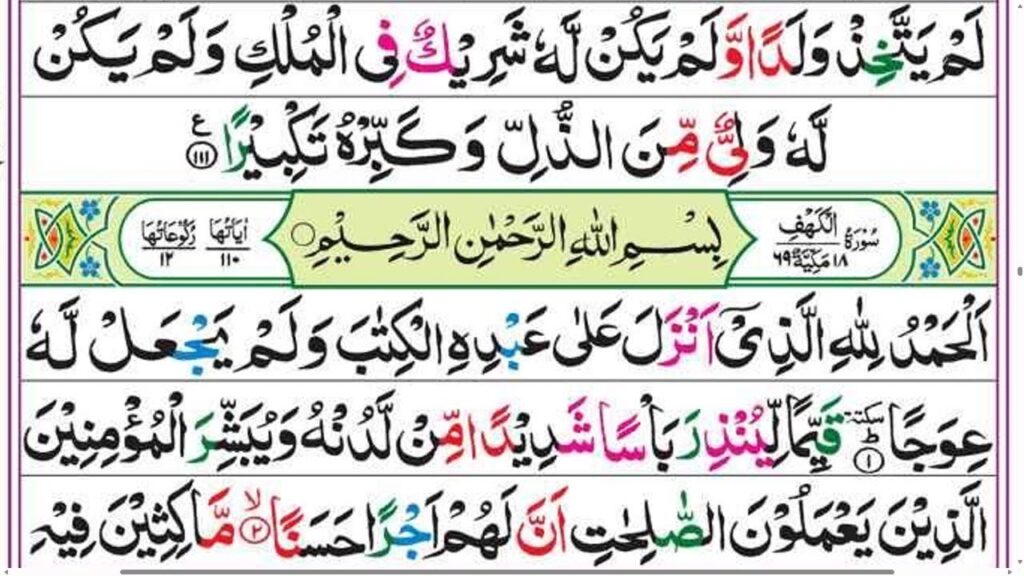 لَمْ يَتَّخِذْ وَلَدًا وَّ لَمْ يَكُنْ لَّهٗ شَرِيْكٌ فِى الْمُلْكِ وَ لَمْ يَكُنْ
لَّهٗ وَلِىٌّ مِّنَ الذُّلِّ وَ كَبِّرْهُ تَكْبِيْرًا ع ١١١
سُوْرَةُ الْكَهْفِ ١٨ مَكِّيَّةٌ ٦٩ بِسْمِ اللّٰهِ الرَّحْمٰنِ الرَّحِيْمِ اٰيَاتُهَا ١١٠ رُكُوْعَاتُهَا ١٢
اَلْحَمْدُ لِلّٰهِ الَّذِىْٓ اَنْزَلَ عَلٰى عَبْدِهِ الْكِتٰبَ وَ لَمْ يَجْعَلْ لَّهٗ
عِوَجًا ١ ط سكتة قَيِّمًا لِّيُنْذِرَ بَاْسًا شَدِيْدًا مِّنْ لَّدُنْهُ وَ يُبَشِّرَ الْمُؤْمِنِيْنَ
الَّذِيْنَ يَعْمَلُوْنَ الصّٰلِحٰتِ اَنَّ لَهُمْ اَجْرًا حَسَنًا ٢ لا مَّاكِثِيْنَ فِيْهِ